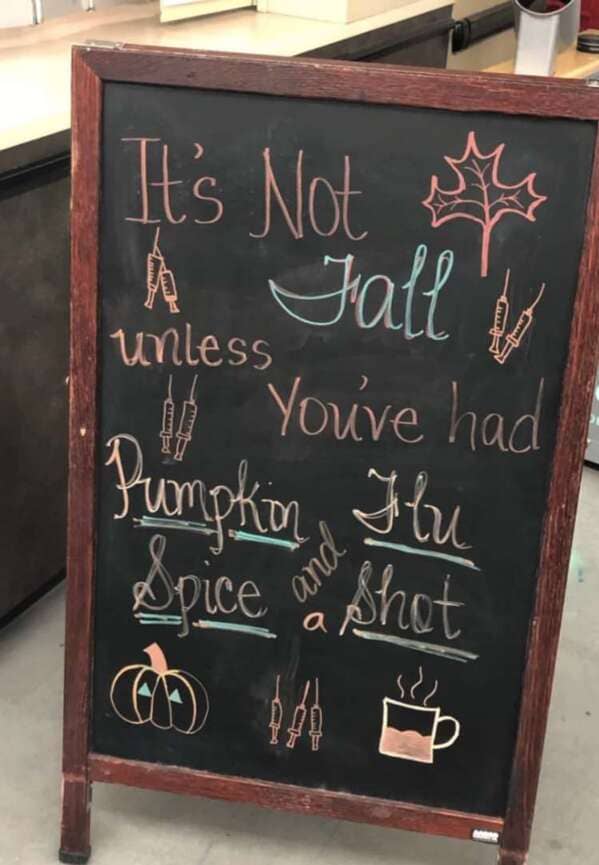 It's Not
Fall
unless
You've had
Pumpkin Flu
Spice and a Shot